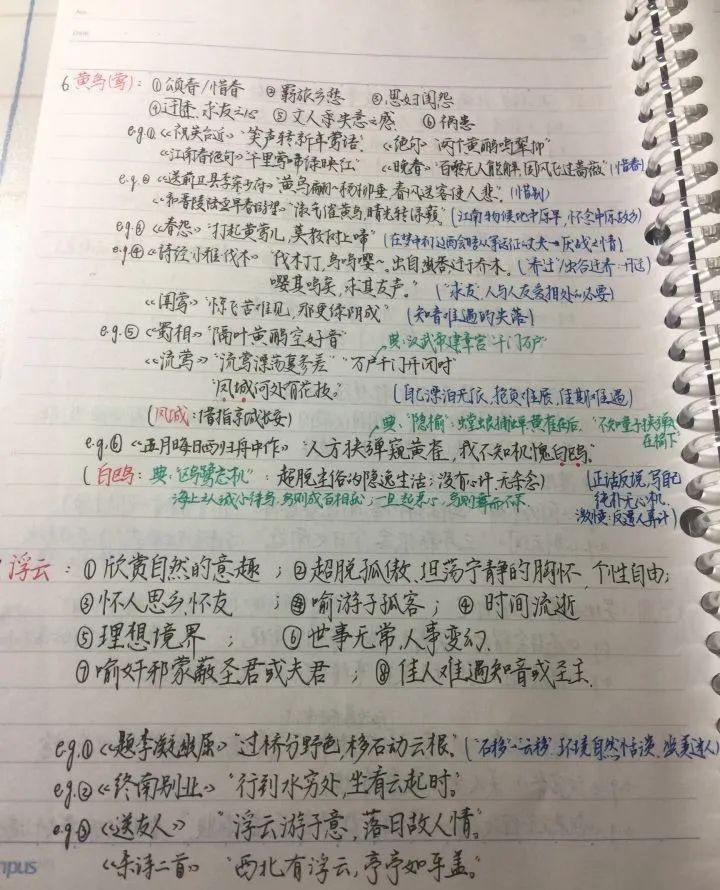 No.
Date.
6 黄鸟(莺)：①颂春/惜春 ②羁旅乡愁 ③思妇闺怨
④迁乔、求友之心 ⑤文人孚失意之感 ⑥祸患
e.g.① "笑声转新年莺语" 《绝句》"两个黄鹂鸣翠柳"
《江南春绝句》"千里莺啼绿映红" 《晚春》"百啭无人能解,因风飞过蔷薇"(惜春)
e.g.② 《送前卫县李寀少府》"黄鸟翩翩杨柳垂,春风送客使人悲"(惜别)
《和晋陵陆丞早春游望》"淑气催黄鸟,晴光转绿蘋"(江南物候比中原早,怀念中原故乡)
e.g.③《春怨》"打起黄莺儿,莫教树上啼"
e.g.④《诗经·小雅·伐木》"伐木丁,鸟鸣嘤~。出自幽谷,迁于乔木。
嘤其鸣矣,求其友声。" ("求友",人与人友爱相处的必要)
《闻莺》"惊飞苦难见,那更绿阴成" (知音难遇的失落)
e.g.⑤《蜀相》"隔叶黄鹂空好音" 典:汉武帝建章宫"千门万户"
《流莺》"流莺漂荡复参差" "万户千门开闭时"
"凤城何处有花枝。" (自己漂泊无依,抱负难展,佳期难遇)
(凤城:借指京城长安) 典、"隐榆":螳螂捕蝉黄雀在后,"不知童子挟弹丸在榆下"
e.g.⑥《五月晦日西归舟中作》"人方挟弹窥黄雀,我不知机愧白鸥。"
(白鸥:典:"鸥鹭忘机":超脱尘俗的隐逸生活;没有心计,无杂念) (正话反说,写自己纯朴无心机,
激愤:反遭人算计)
浮云：①欣赏自然的意趣；②超脱孤傲、坦荡宁静的胸怀,个性自由；
③怀人思乡、怀友；喻游子孤客；④时间流逝
⑤理想境界；⑥世事无常,人事变幻.
⑦喻奸邪蒙蔽圣君或夫君；⑧佳人难遇知音或圣主.
e.g.①《题李凝幽居》"过桥分野色,移石动云根。"("石移""云移",环境自然恬淡、幽美迷人)
e.g.②《终南别业》"行到水穷处,坐看云起时。"
e.g.③《送友人》 "浮云游子意,落日故人情。"
《杂诗二首》 "西北有浮云,亭亭如车盖。"
mpus